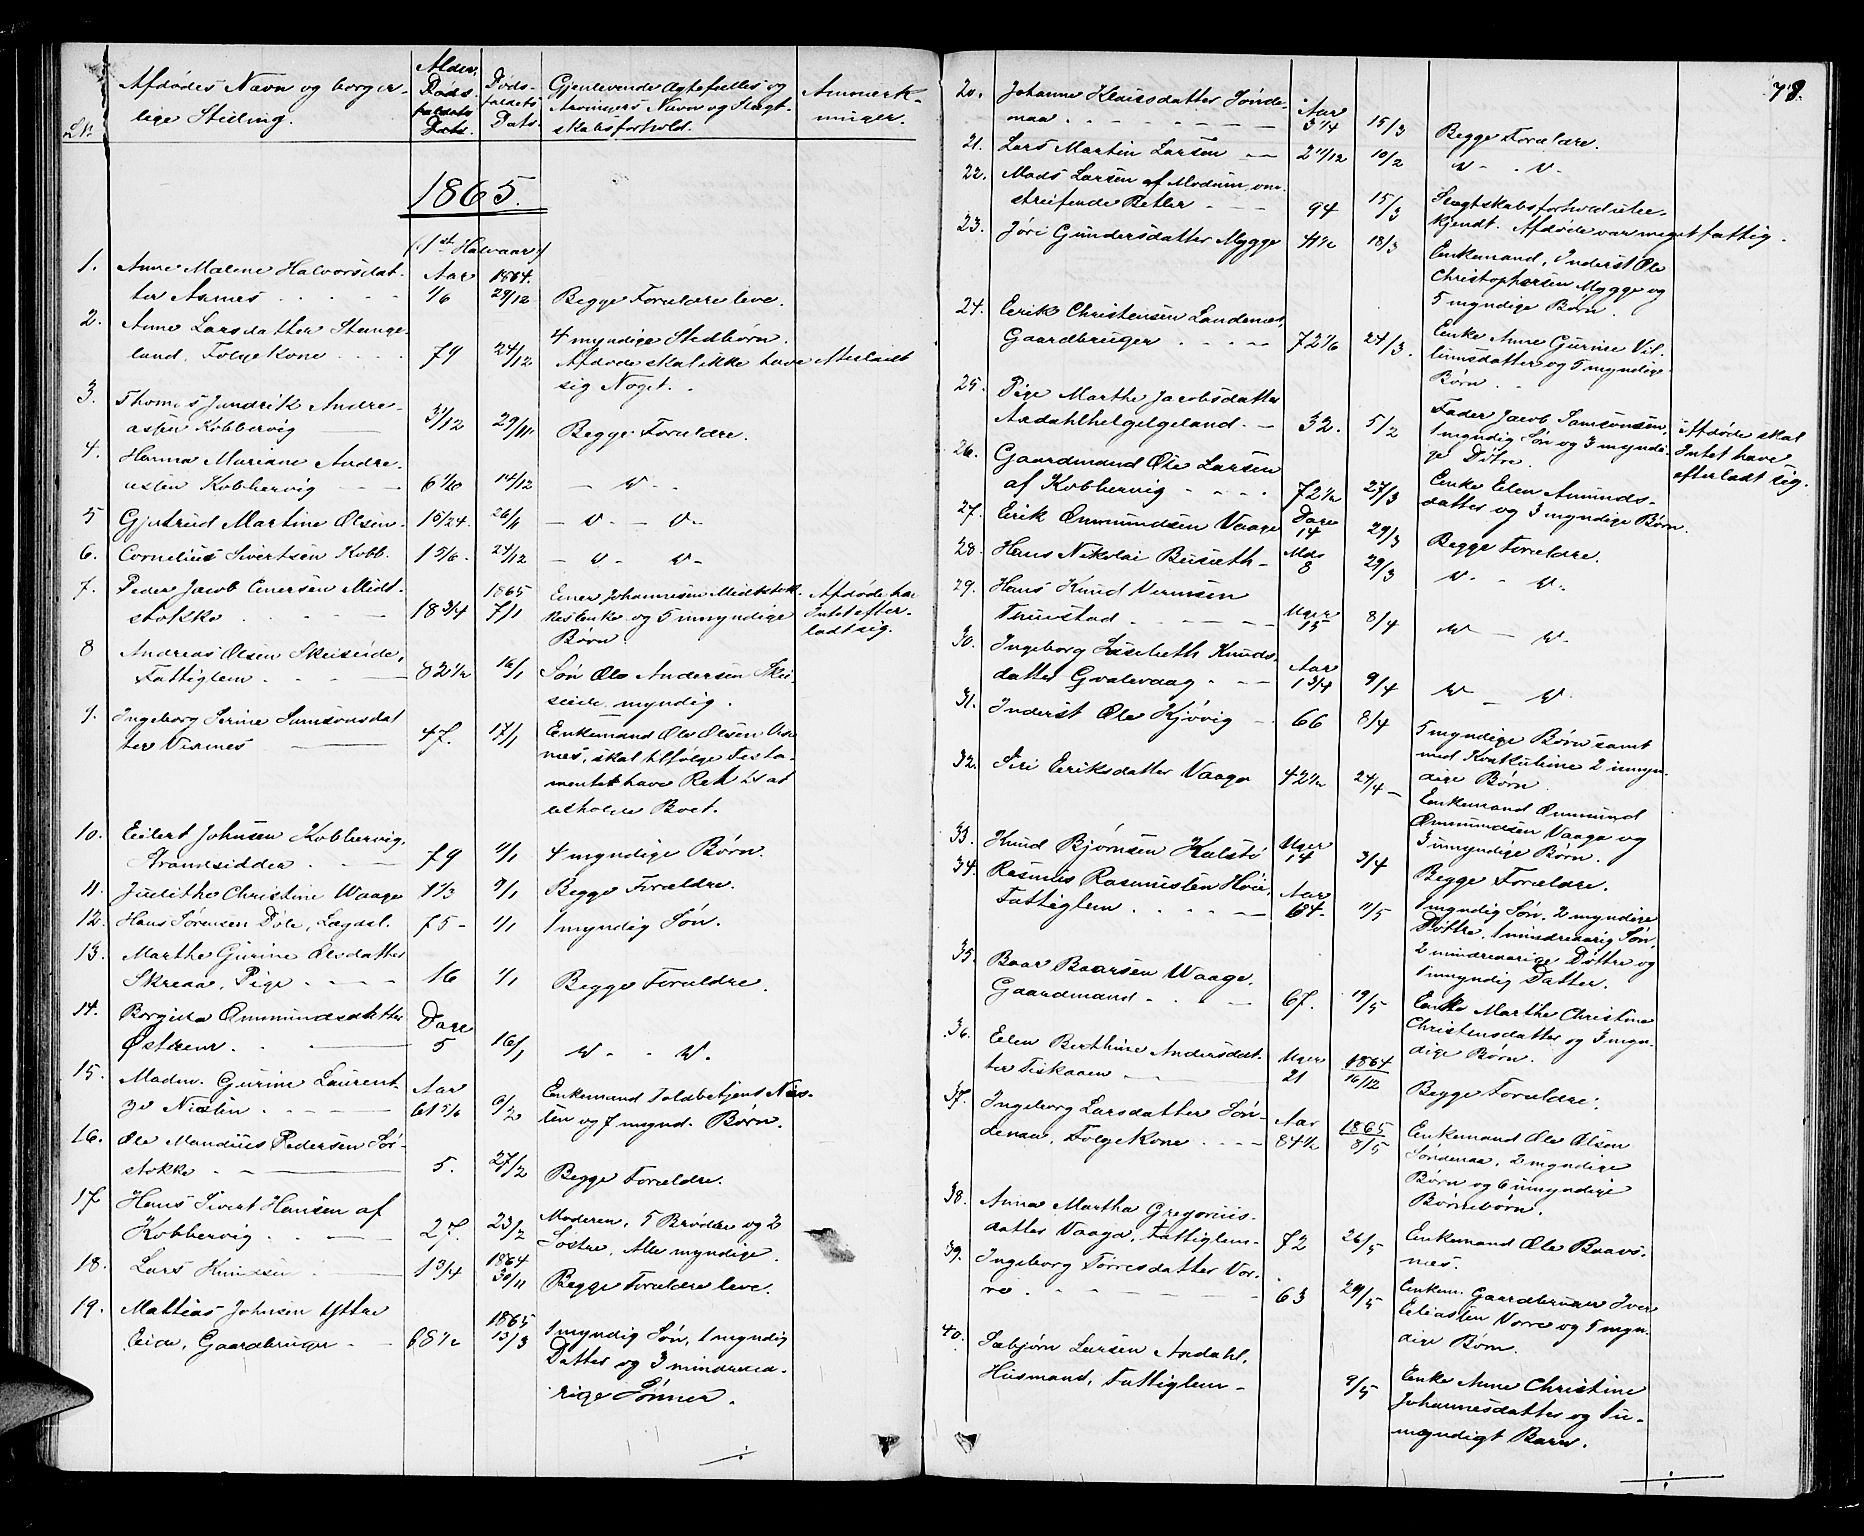 Nr. Afdødes Navn og borger- Alder. Døds- Gjenlevende Ægtefælles og Anmærk-
lige Stilling. Dødsfaldets Dato. faldets Dato. Arvingers Navn og Slægt- ninger.
skabsforhold.
1865.
(1ste Halvaar)
1. Anne Malene Halvorsdat- Aar 1864.
ter Aarnes 1/6 29/12 Begge Forældre leve.
2. Anne Larsdatter Stange- 4 myndige Stedbørn.
land, Folgekone 79 24/12 Afdøde skal ikke have efterladt
sig Noget.
3. Thomas Jundrik Andre-
assen Kobbervig 3 1/12 29/11 Begge Forældre.
4. Hanna Mariane Andre-
assen Kobbervig 6 14/12 — v. -
5 Gjertrud Martine Olsen 15/24. 26/11 — v. — v. -
6. Cornelius Sivertsen Kobb. 1 5/6. 24/12 — v. v. -
7. Peder Jacob Einersen Midt- 1865 Einer Johannesen Midtstok- Afdøde har
stokke 18 3/4 7/1 kes Enke og 5 umyndige Intet efter-
Børn. ladt sig.
8 Andreas Olsen Skeiseide,
Fattiglem 82 1/2 16/1 Søn Ole Andersen Skei-
seide, myndig.
9. Ingeborg Serine Samsonsdat
ter 47. 17/1 Enkemand Ole Olsen
nes, skal tilfølge Testa-
mentet have Ret til at
beholde Boet.
10. Eilert Johnsen Kobbervig,
Strandsidder 79 11/1 4 myndige Børn.
11. Judithe Christine Waage 1 1/3 9/1 Begge Forældre.
12. Hans Sørensen Døle, Lægdsl. 75 - 1/1 1 myndig Søn.
13. Marthe Gurine Olsdatter
Skreaa, Pige 16 1/1 Begge Forældre.
14. Borgilla Ommundsdatter Dage
Østrem 5 16/1 v. - . v.
15. Madm. Gurine Laurent- Aar Enkemand Toldbetjent Niel-
ze Nielsen 61 6/2 sen og 7 mynd. Børn.
16. Ole Mandius Pedersen Sør-
stokke 5. 27/2 Begge Forældre.
17. Hans Sivert Hansen af Moderen, 5 Brødre og 2
Kobbervig 27. 23/2 Søstre, Alle myndige.
18. Lars Knudsen 1 3/4 1864 30/11 Begge Forældre leve.
19. Mattias Johnsen Yttre 1865
Eide, Gaardbruger 68 1/2 13/3 1 myndig Søn, 1 myndig
Datter og 3 mindreaa-
rige Sønner.
78.
20. Johanne Klausdatter Sønde- Aar
naa 3 1/4 15/3 Begge Forældre.
21. Lars Martin Larsen 2 11/12 10/2 v - . v.
22. Mads Larsen af Modum, om-
streifende Betler 94 15/3 Slægtskabsforhold ube-
kjendt. Afdøde var meget fattig.
23. Jøri Gundersdatter Mygge 18/3 Enkemand, Inderst Ole
Christophersen Mygge og
5 myndige Børn.
24. Eerik Christensen Landenæs,
Gaardbruger 72 1/6 24/3. Enke Anne Gurine Vil-
lumsdatter og 5 myndige
Børn.
25. Pige Marthe Jacobsdatter
Aardahlhelgelgeland 32. 5/2 Fader Jacob Samsonsen, Afdøde skal
1 myndig Søn og 3 myndi- Intet have
ge Døtre. efterladt sig.
26. Gaardmand Ole Larsen
af Kobbervig 72 1/2 27/3 Enke Elen Amunds-
datter og 3 myndige Børn.
27. Erik Ommundsen Vaage Dage 14 29/3 Begge Forældre.
28. Hans Nikolai Busæth Mdr 8 29/3 v. - v.
29. Hans Knud Vermsen
Tuustad Uger 15 8/4 v. — v.
30. Ingeborg Lisebeth Knuds-
datter Gvalevaag Aar 1 3/4 9/4 v. v.
31. Inderst Ole Kjøvig 66 8/4 5 myndige Børn samt
med Konkubine 2 umyn-
dige Børn.
32. Siri Eriksdatter Vaage 42 1/2 24/4 - Enkemand Ommund
Ommundsen Vaage og
3 umyndige Børn.
33. Knud Bjørnsen Kalstø Uger 14 3/4 Begge Forældre.
34. Rasmus Rasmussen Høie,
Fattiglem Aar 64. 11/5 1 myndig Søn, 2 myndige
Døttre, 1 mindreaarig Søn,
2 mindreaarige Døttre og
1 myndig Datter.
35. Baar Baarsen Waage,
Gaardmand 67. 19/5 Enke Marthe Christine
Christensdatter og 3 myn-
dige Børn.
36. Elen Berthine Andersdat- Uger 1864
ter Fiskaaen 21 16/12 Begge Forældre.
37. Ingeborg Larsdatter Søn- Aar 1865
denaa, Folgekone 84 1/2 8/5 Enkemand Ole Olsen
Søndenaa, 2 myndige
Børn og 6 umyndige
Børnebørn.
38. Anna Martha Gregorius-
datter Vaaga, Fattiglem 72 26/5 Enkemand Ole Baavs-
nes.
39. Ingeborg Torresdatter Vor-
re 63 29/5 Enkem. Gaardbruger Iver
Eliassen Vorre og 5 myn-
dige Børn.
40. Sæbjørn Larsen Aardahl,
Husmand, Fattiglem 9/5 Enke Anne Christine
Johannesdatter og 1 u-
myndigt Barn.